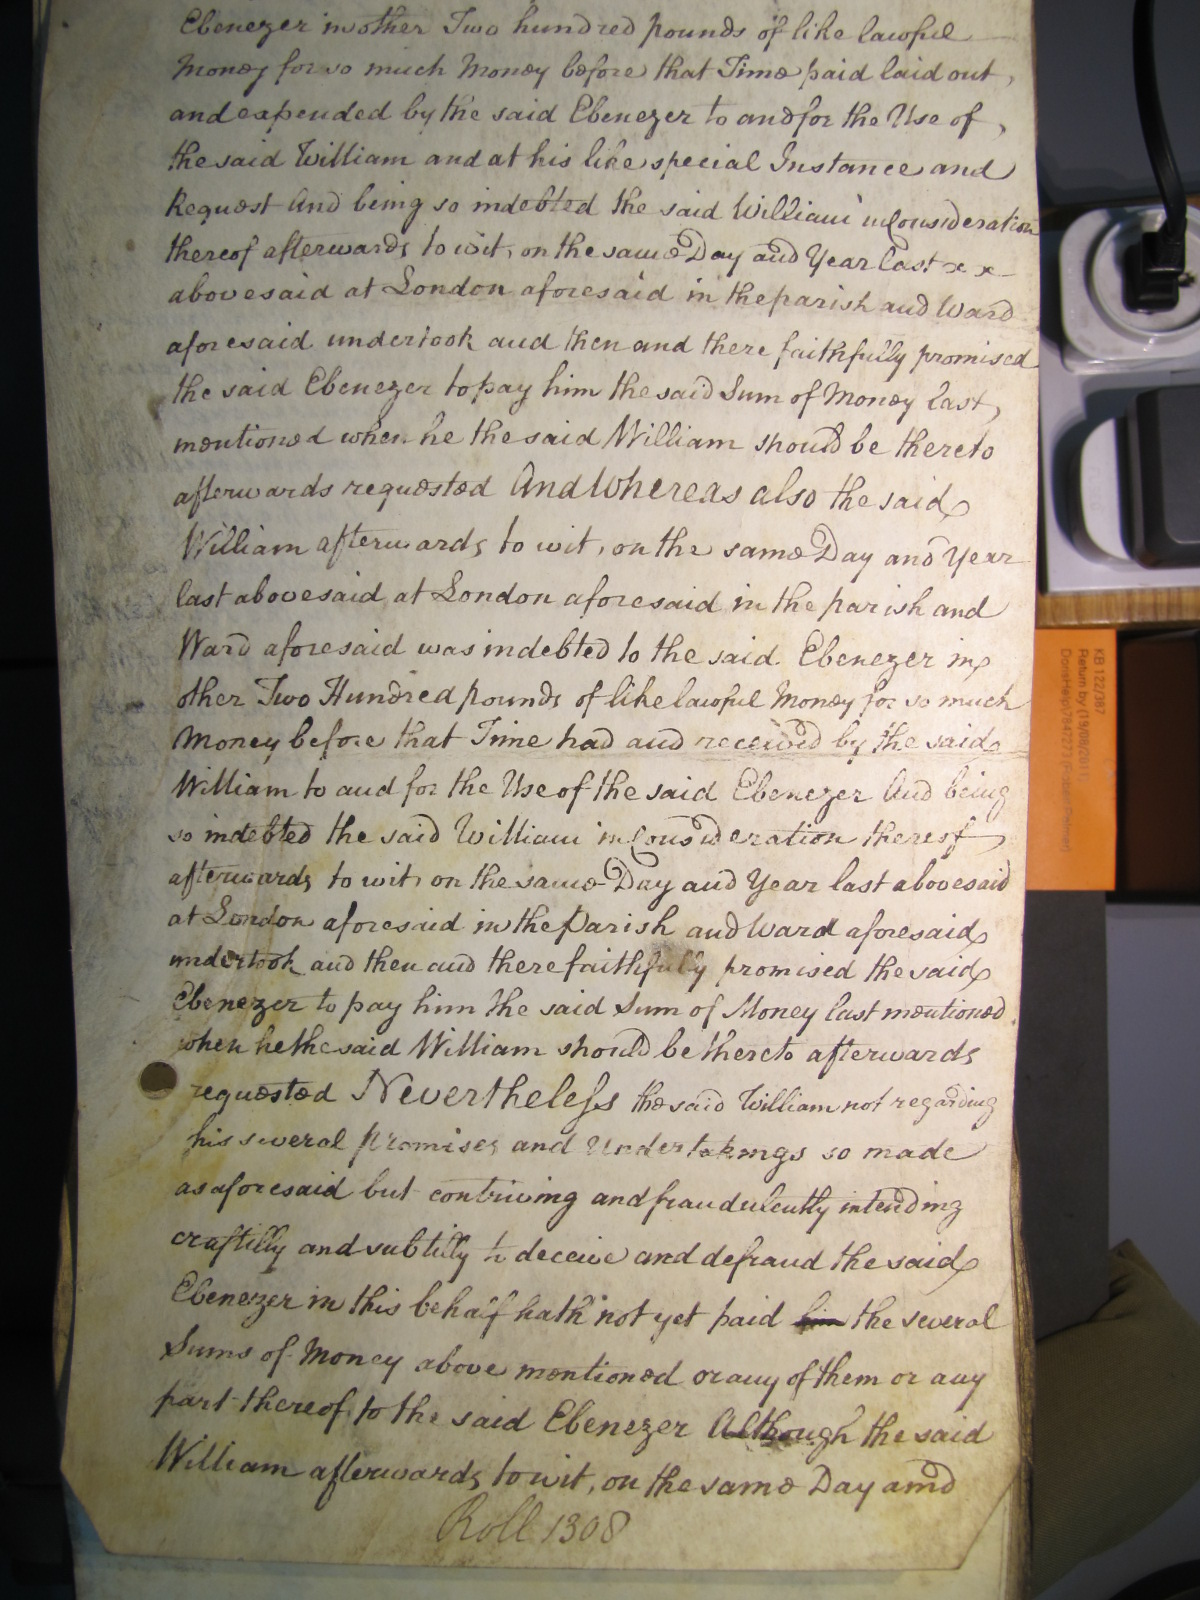 Ebenezer in other Two hundred pounds of like lawful
Money for so much Money before that Time paid laid out,
and expended by the said Ebenezer to and for the Use of,
the said William and at his like special Instance and
Request And being so indebted the said William in Consideration
thereof afterwards to wit, on the same Day and Year last x x
abovesaid at London aforesaid in the parish and Ward
aforesaid undertook and then and there faithfully promised
the said Ebenezer to pay him the said Sum of Money last,
mentioned when he the said William should be thereto
afterwards requested And Whereas also the said
William afterwards to wit, on the same Day and Year
last abovesaid at London aforesaid in the parish and
Ward aforesaid was indebted to the said Ebenezer in
other Two Hundred pounds of like lawful Money for so much
Money before that Time had and received by the said
William to and for the Use of the said Ebenezer And being
so indebted the said William in Consideration thereof
afterwards to wit, on the same Day and Year last abovesaid
at London aforesaid in the Parish and Ward aforesaid
undertook and then and there faithfully promised the said
Ebenezer to pay him the said Sum of Money last mentioned
when he the said William should be thereto afterwards
requested Nevertheless the said William not regarding
his several Promises and Undertakings so made
as aforesaid but contriving and fraudulently intending
craftilly and subtilly to deceive and defraud the said
Ebenezer in this behalf hath not yet paid him the several
Sums of Money above mentioned or any of them or any
part thereof to the said Ebenezer Although the said
William afterwards to wit, on the same Day and
Roll 1308
KB 122/387
Return by (19/08/2011)